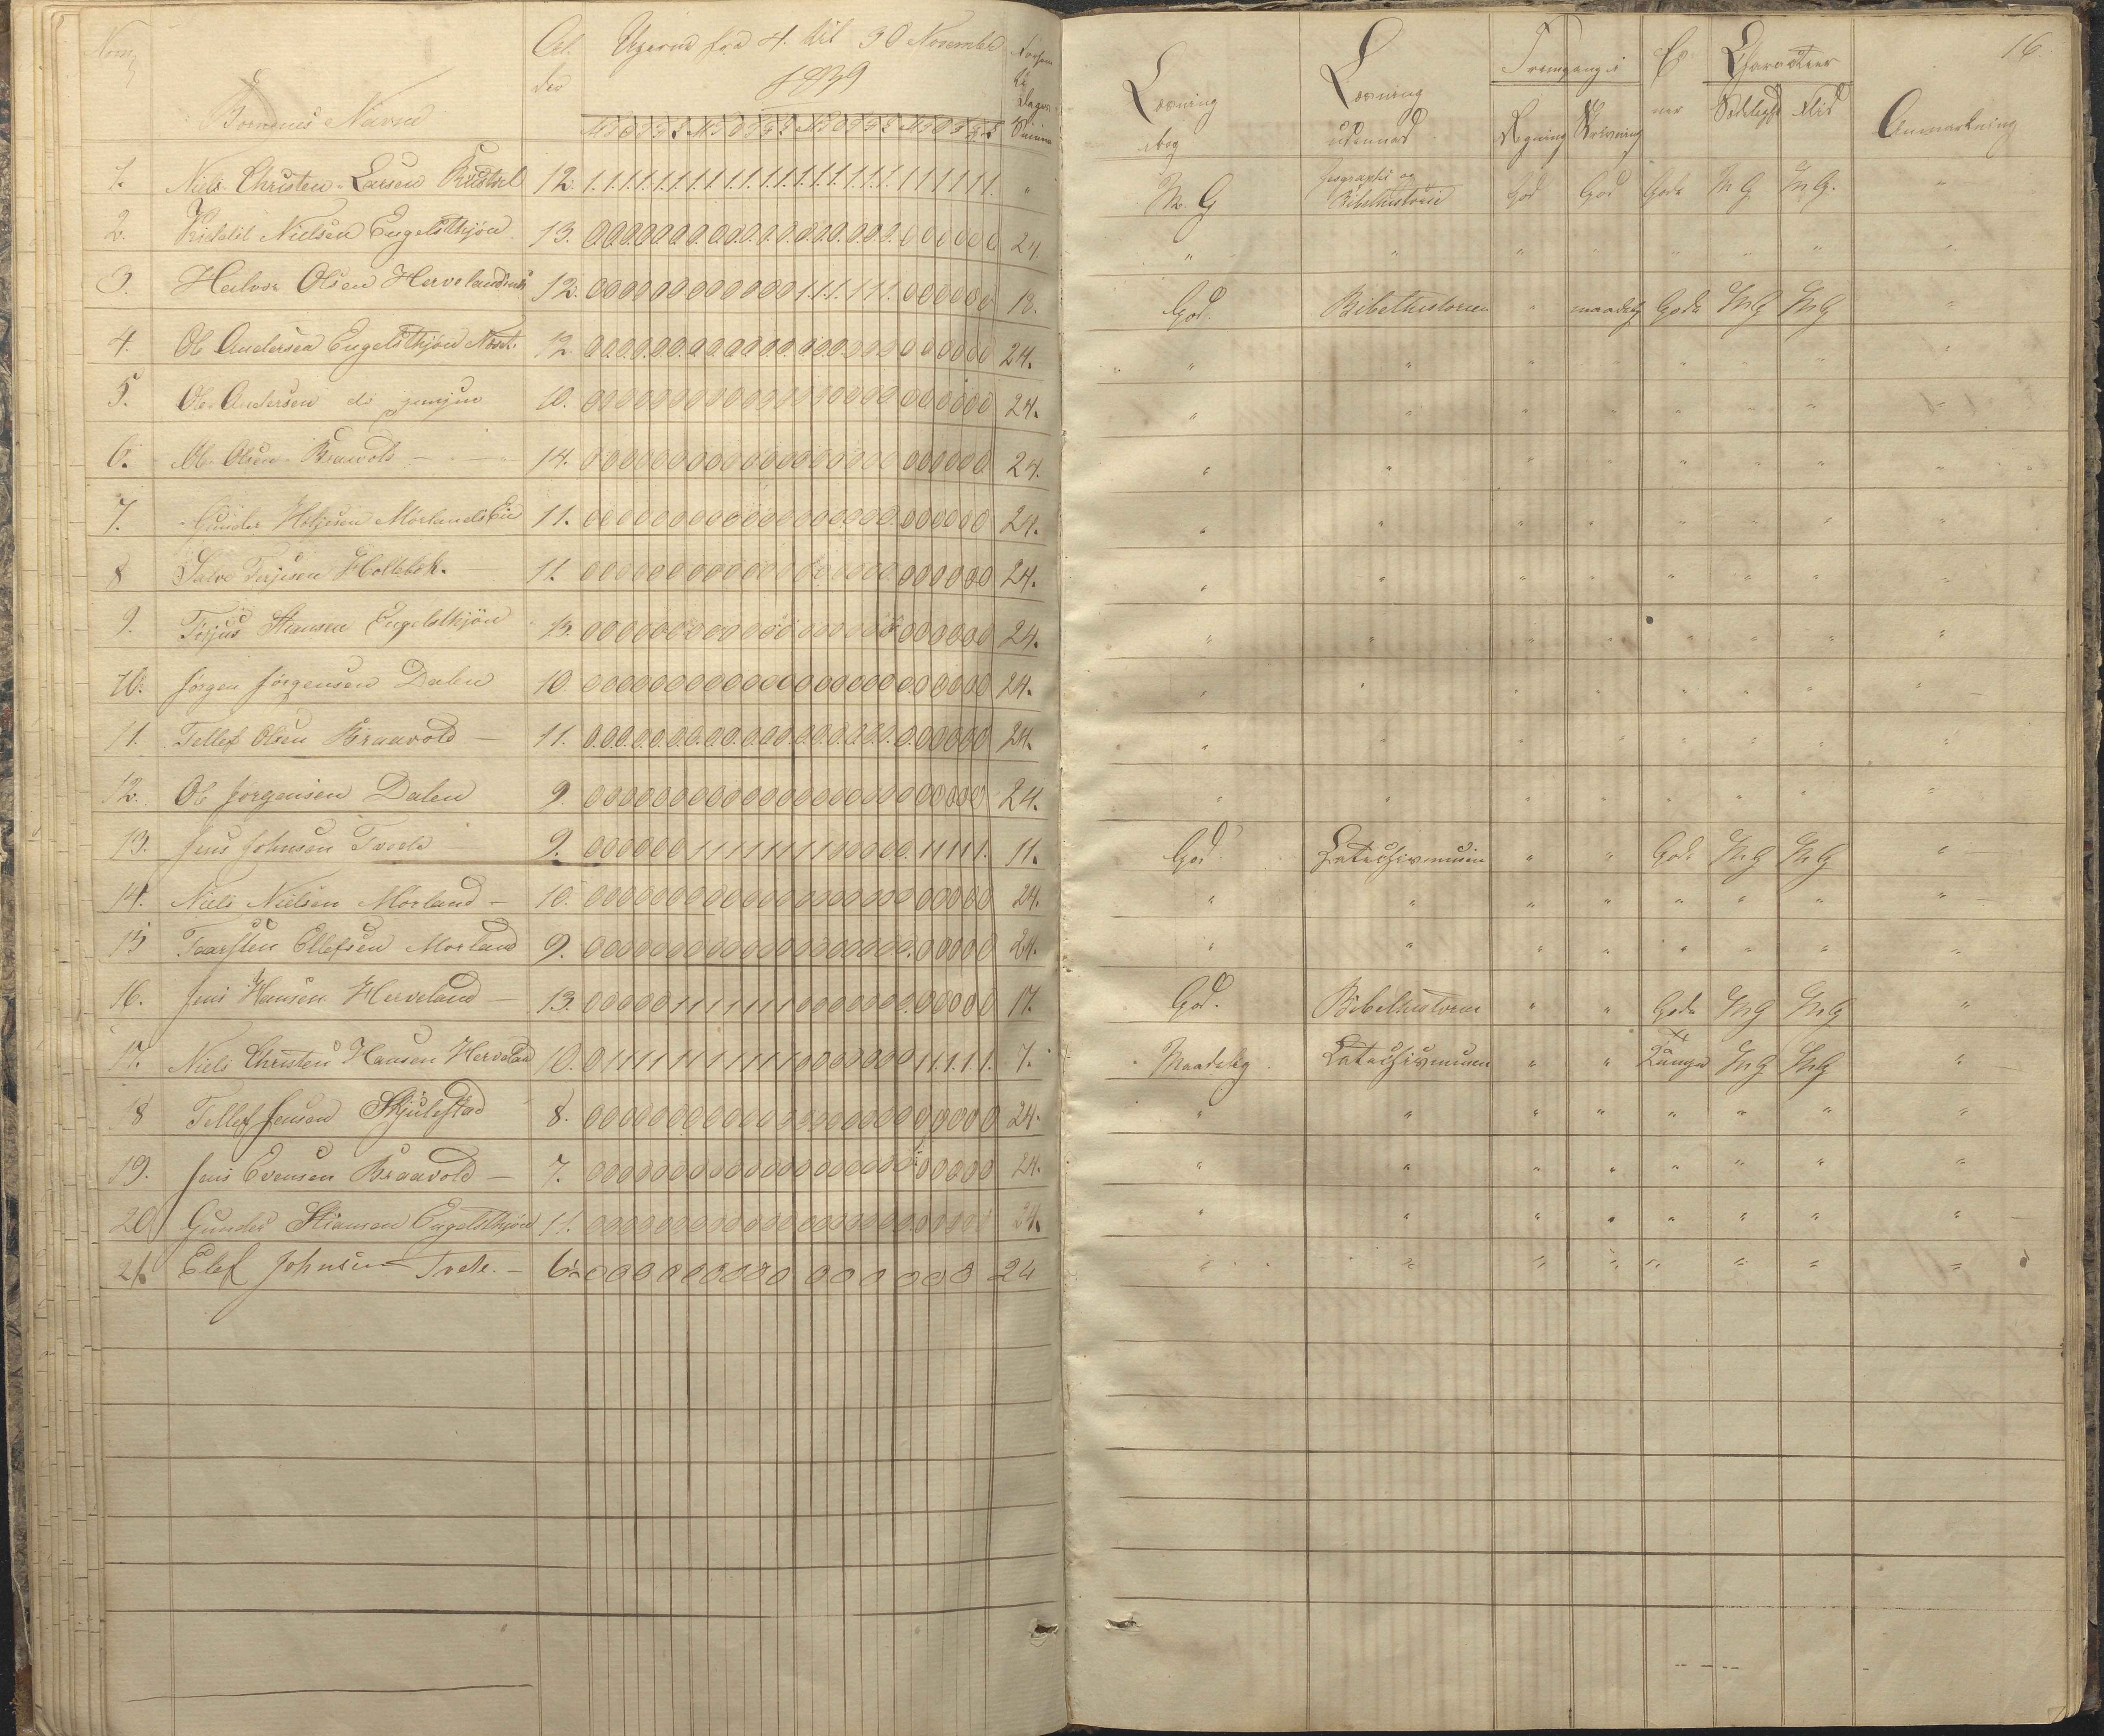 Børnenes Navne
Al
der
Ugerne fra 4. til 30 November
1839
Dage
16.
Læsning
i bog
Læsning
udenad
Fremgang i
Regning Skrivning
Ev
ner
Charakteer
Sædelighd Flid
Anmærkning
1. Niels Christen Larsen 12. 1.1.1.1.1.1.1.1.1.1.1.1.1.1.1.1.1.1.1.1.1.1.1.1. " M. G Geographi og Bibelhistorie God God Gode M G M G. "
2. Nielsen Engelsthjøn 13. 0 0 0 0 0 0 0 0 0 0 0 0 0 0 0 0 0 0 0 0 0 0 0 0 24. " " " " " " " "
3. Halvor Olsen 12. 0 0 0 0 0 0 0 0 0 0 0 0 1.1.1.1.1.1. 0 0 0 0 0 0 18. God. Bibelhistorien " maadelig Gode M G M G "
4. Ole Andersen Engelsthjøn 12. 0 0 0 0 0 0 0 0 0 0 0 0 0 0 0 0 0 0 0 0 0 0 0 0 24. " " " " " " " "
5. Ole Andersen do 10. 0 0 0 0 0 0 0 0 0 0 0 0 0 0 0 0 0 0 0 0 0 0 0 0 24. " " " " " " " "
6. Ole Olsen Braavold — 14. 0 0 0 0 0 0 0 0 0 0 0 0 0 0 0 0 0 0 0 0 0 0 0 0 24. " " " " " " " "
7. Gunder Holjesen Mørlands Eie 11. 0 0 0 0 0 0 0 0 0 0 0 0 0 0 0 0 0 0 0 0 0 0 0 0 24. " " " " " " " "
8 Salve Terjesen Holtebek. 11. 0 0 0 0 0 0 0 0 0 0 0 0 0 0 0 0 0 0 0 0 0 0 0 0 24. " " " " " " " "
9. Terjus Stiansen Engelsthjøn 13. 0 0 0 0 0 0 0 0 0 0 0 0 0 0 0 0 0 0 0 0 0 0 0 0 24. " " " " " " " "
10. Jørgen Jørgensen Dalen 10. 0 0 0 0 0 0 0 0 0 0 0 0 0 0 0 0 0 0 0 0 0 0 0 0 24. " " " " " " " "
11. Tellef Olsen Braavold — 11. 0 0 0 0 0 0 0 0 0 0 0 0 0 0 0 0 0 0 0 0 0 0 0 0 24. " " " " " " " "
12. Ole Jørgensen Dalen 9. 0 0 0 0 0 0 0 0 0 0 0 0 0 0 0 0 0 0 0 0 0 0 0 0 24. " " " " " " " "
13. Jens Johnsen Tvede 9. 0 0 0 0 0 0 1 1 1 1 1 1 1 1 0 0 0 0 0. 1 1 1 1 1. 11. God Catechismusen " " Gode M G M G "
14. Niels Nielsen Mørland — 10. 0 0 0 0 0 0 0 0 0 0 0 0 0 0 0 0 0 0 0 0 0 0 0 0 24. " " " " " " " "
15 Taarsten Ellefsen Morland 9. 0 0 0 0 0 0 0 0 0 0 0 0 0 0 0 0 0 0 0 0 0 0 0 0 24. " " " " " " " "
16. Jens Hansen Herveland — 13. 0 0 0 0 0 1 1 1 1 1 1 1 0 0 0 0 0 0 0 0 0 0 0 0 17. God. Bibelhistorien " " Gode M G M G "
17. Niels Christen Hansen Herveland 10. 0 1 1 1 1 1 1 1 1 1 1 1 0 0 0 0 0 0 1 1.1.1.1. 7. Maadelig Catechismusen " " M G M G "
18 Tellef Jensen Skjulestad 8. 0 0 0 0 0 0 0 0 0 0 0 0 0 0 0 0 0 0 0 0 0 0 0 0 24. " " " " " " " "
19. Jens Evensen Braavold — 7. 0 0 0 0 0 0 0 0 0 0 0 0 0 0 0 0 0 0 0 0 0 0 0 0 24. " " " " " " " "
20 Gunder Stiansen Engelsthjøn 11. 0 0 0 0 0 0 0 0 0 0 0 0 0 0 0 0 0 0 0 0 0 0 0 0 24. " " " " " " " "
21. Elef Johnsen Tvede. — 6 0 0 0 0 0 0 0 0 0 0 0 0 0 0 0 24 " " " " " " " "